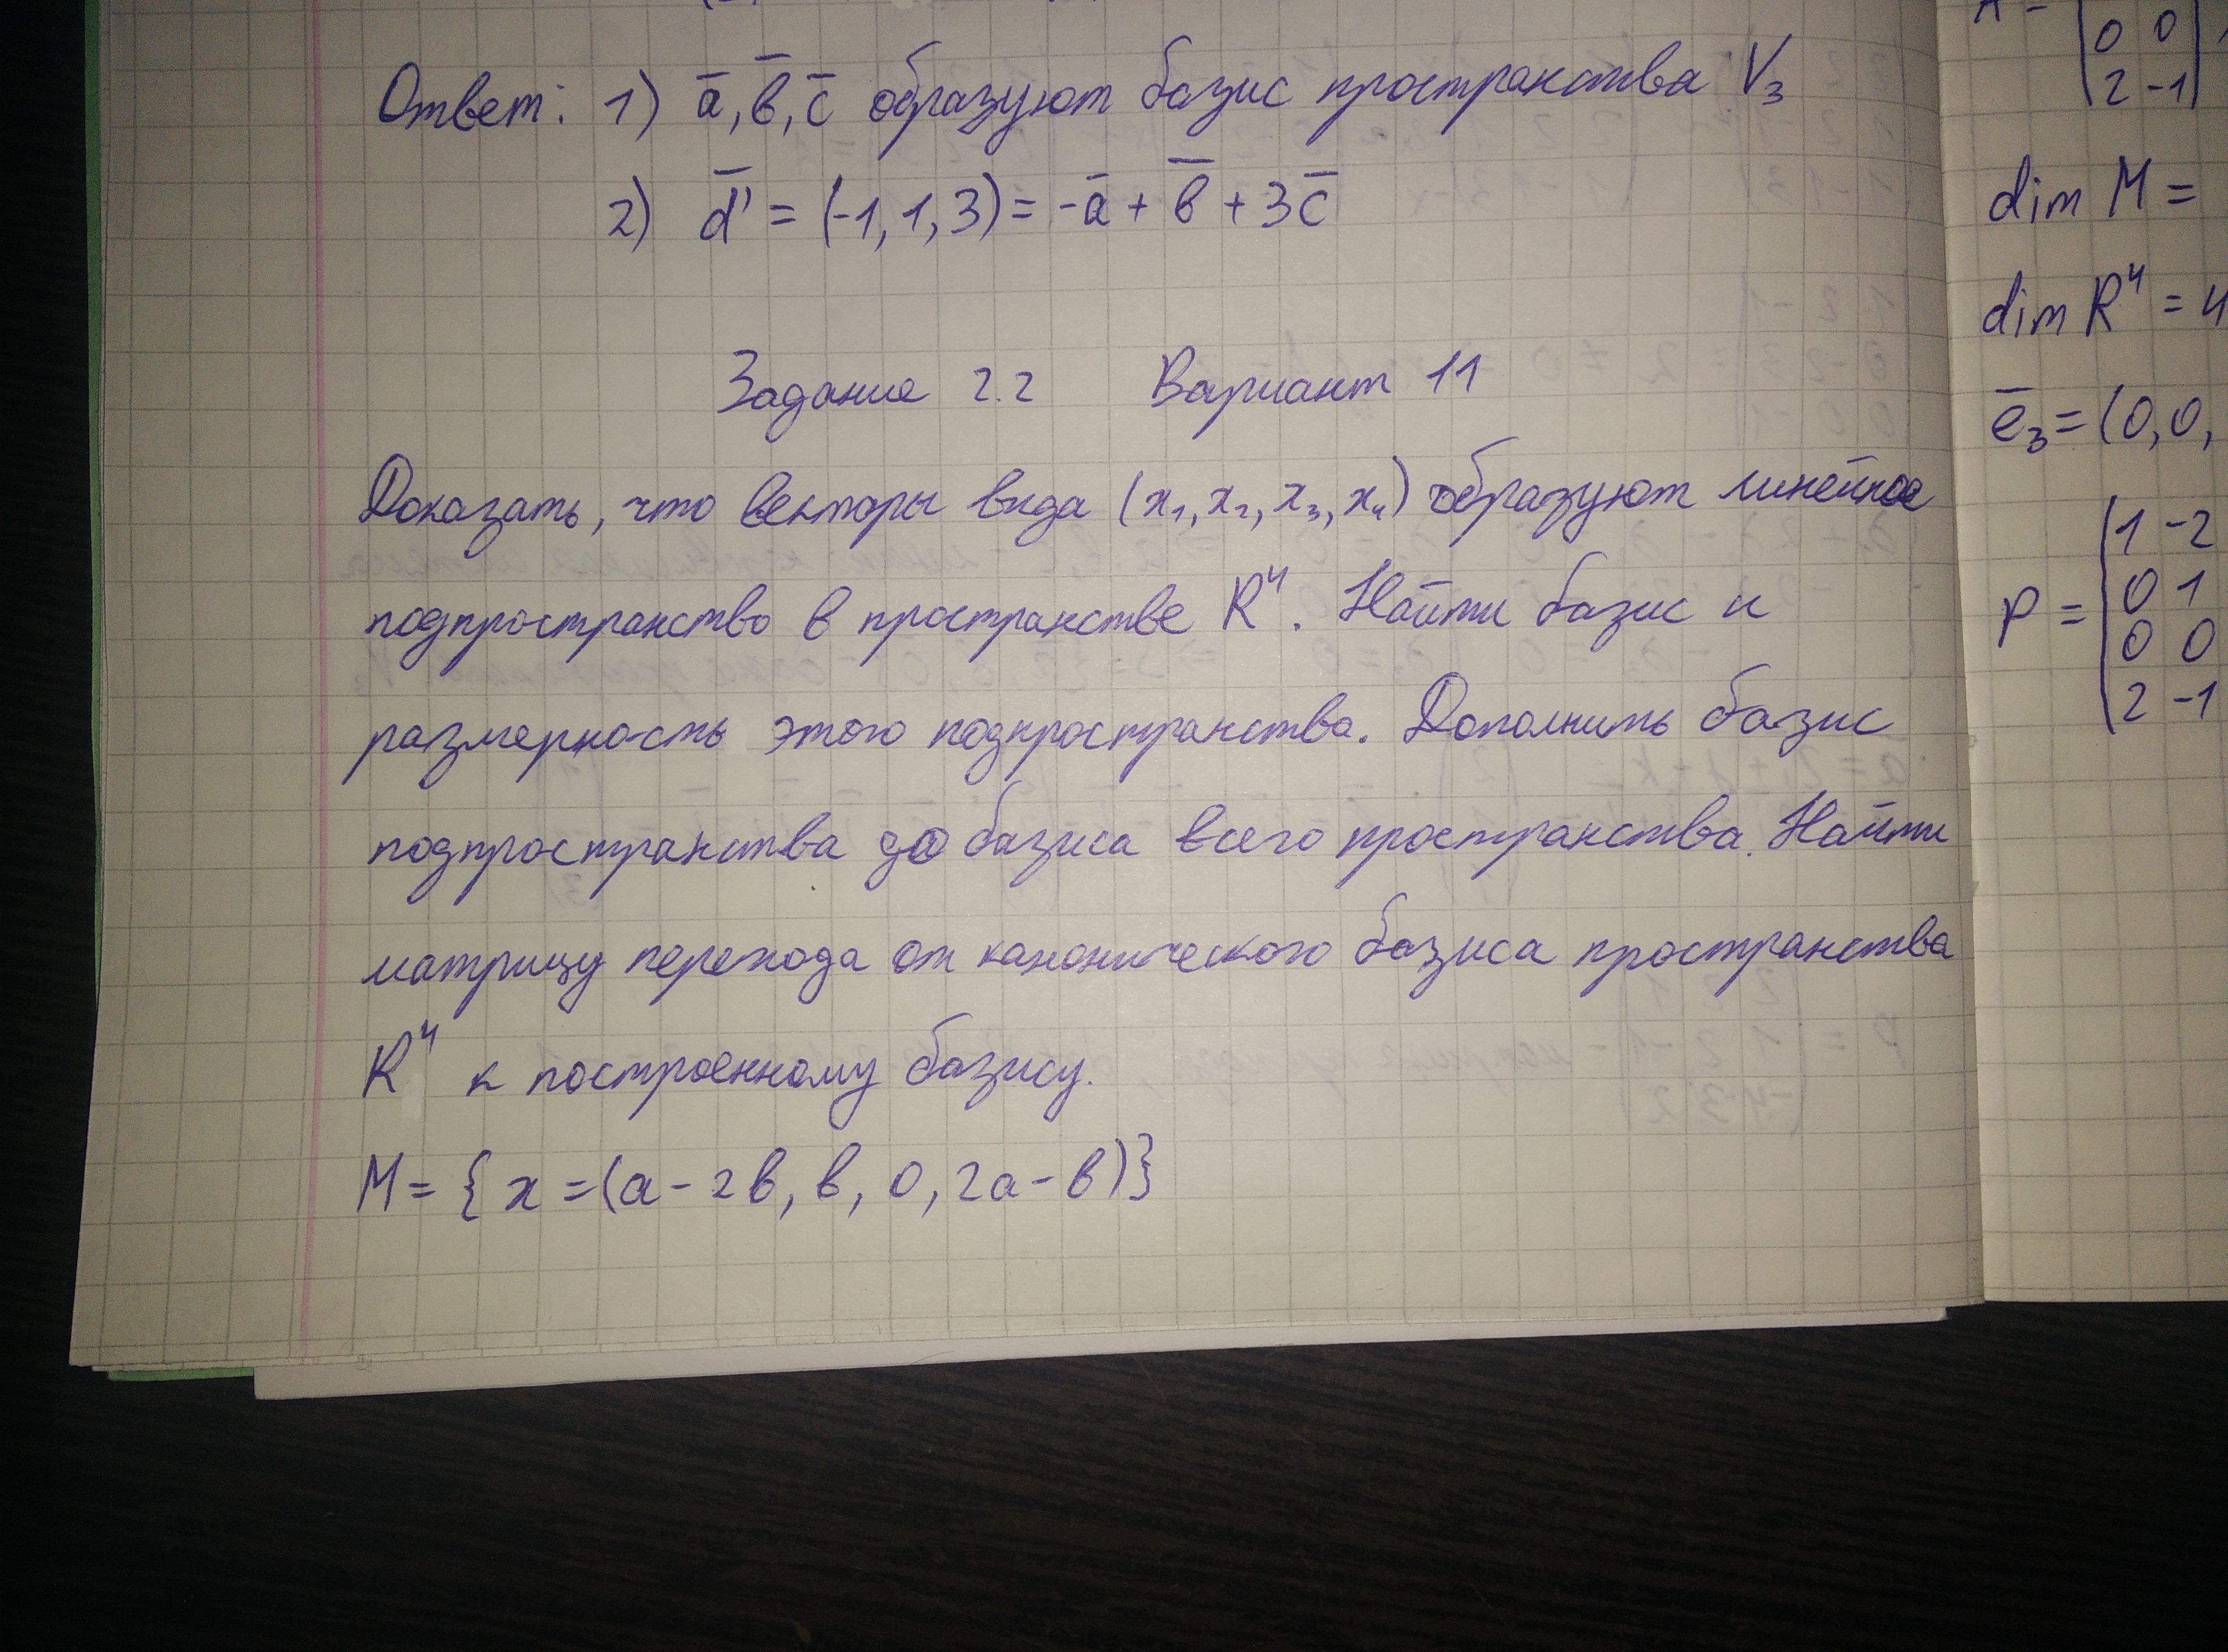 Ответ: 1) a̅, в̅, c̅ образуют базис пространства V₃
2) d̅' = (-1, 1, 3) = -a̅ + в̅ + 3c̅
Задание 2.2 Вариант 11
Доказать, что векторы вида (x₁, x₂, x₃, x₄) образуют линейное
подпространство в пространстве R⁴. Найти базис и
размерность этого подпространства. Дополнить базис
подпространства до базиса всего пространства. Найти
матрицу перехода от канонического базиса пространства
R⁴ к построенному базису.
M = { x = (a - 2в, в, 0, 2a - в)}
0 0
2 -1
dim M =
dim R⁴ = 4
e̅₃ = (0, 0,
P = 1 -2
0 1
0 0
2 -1